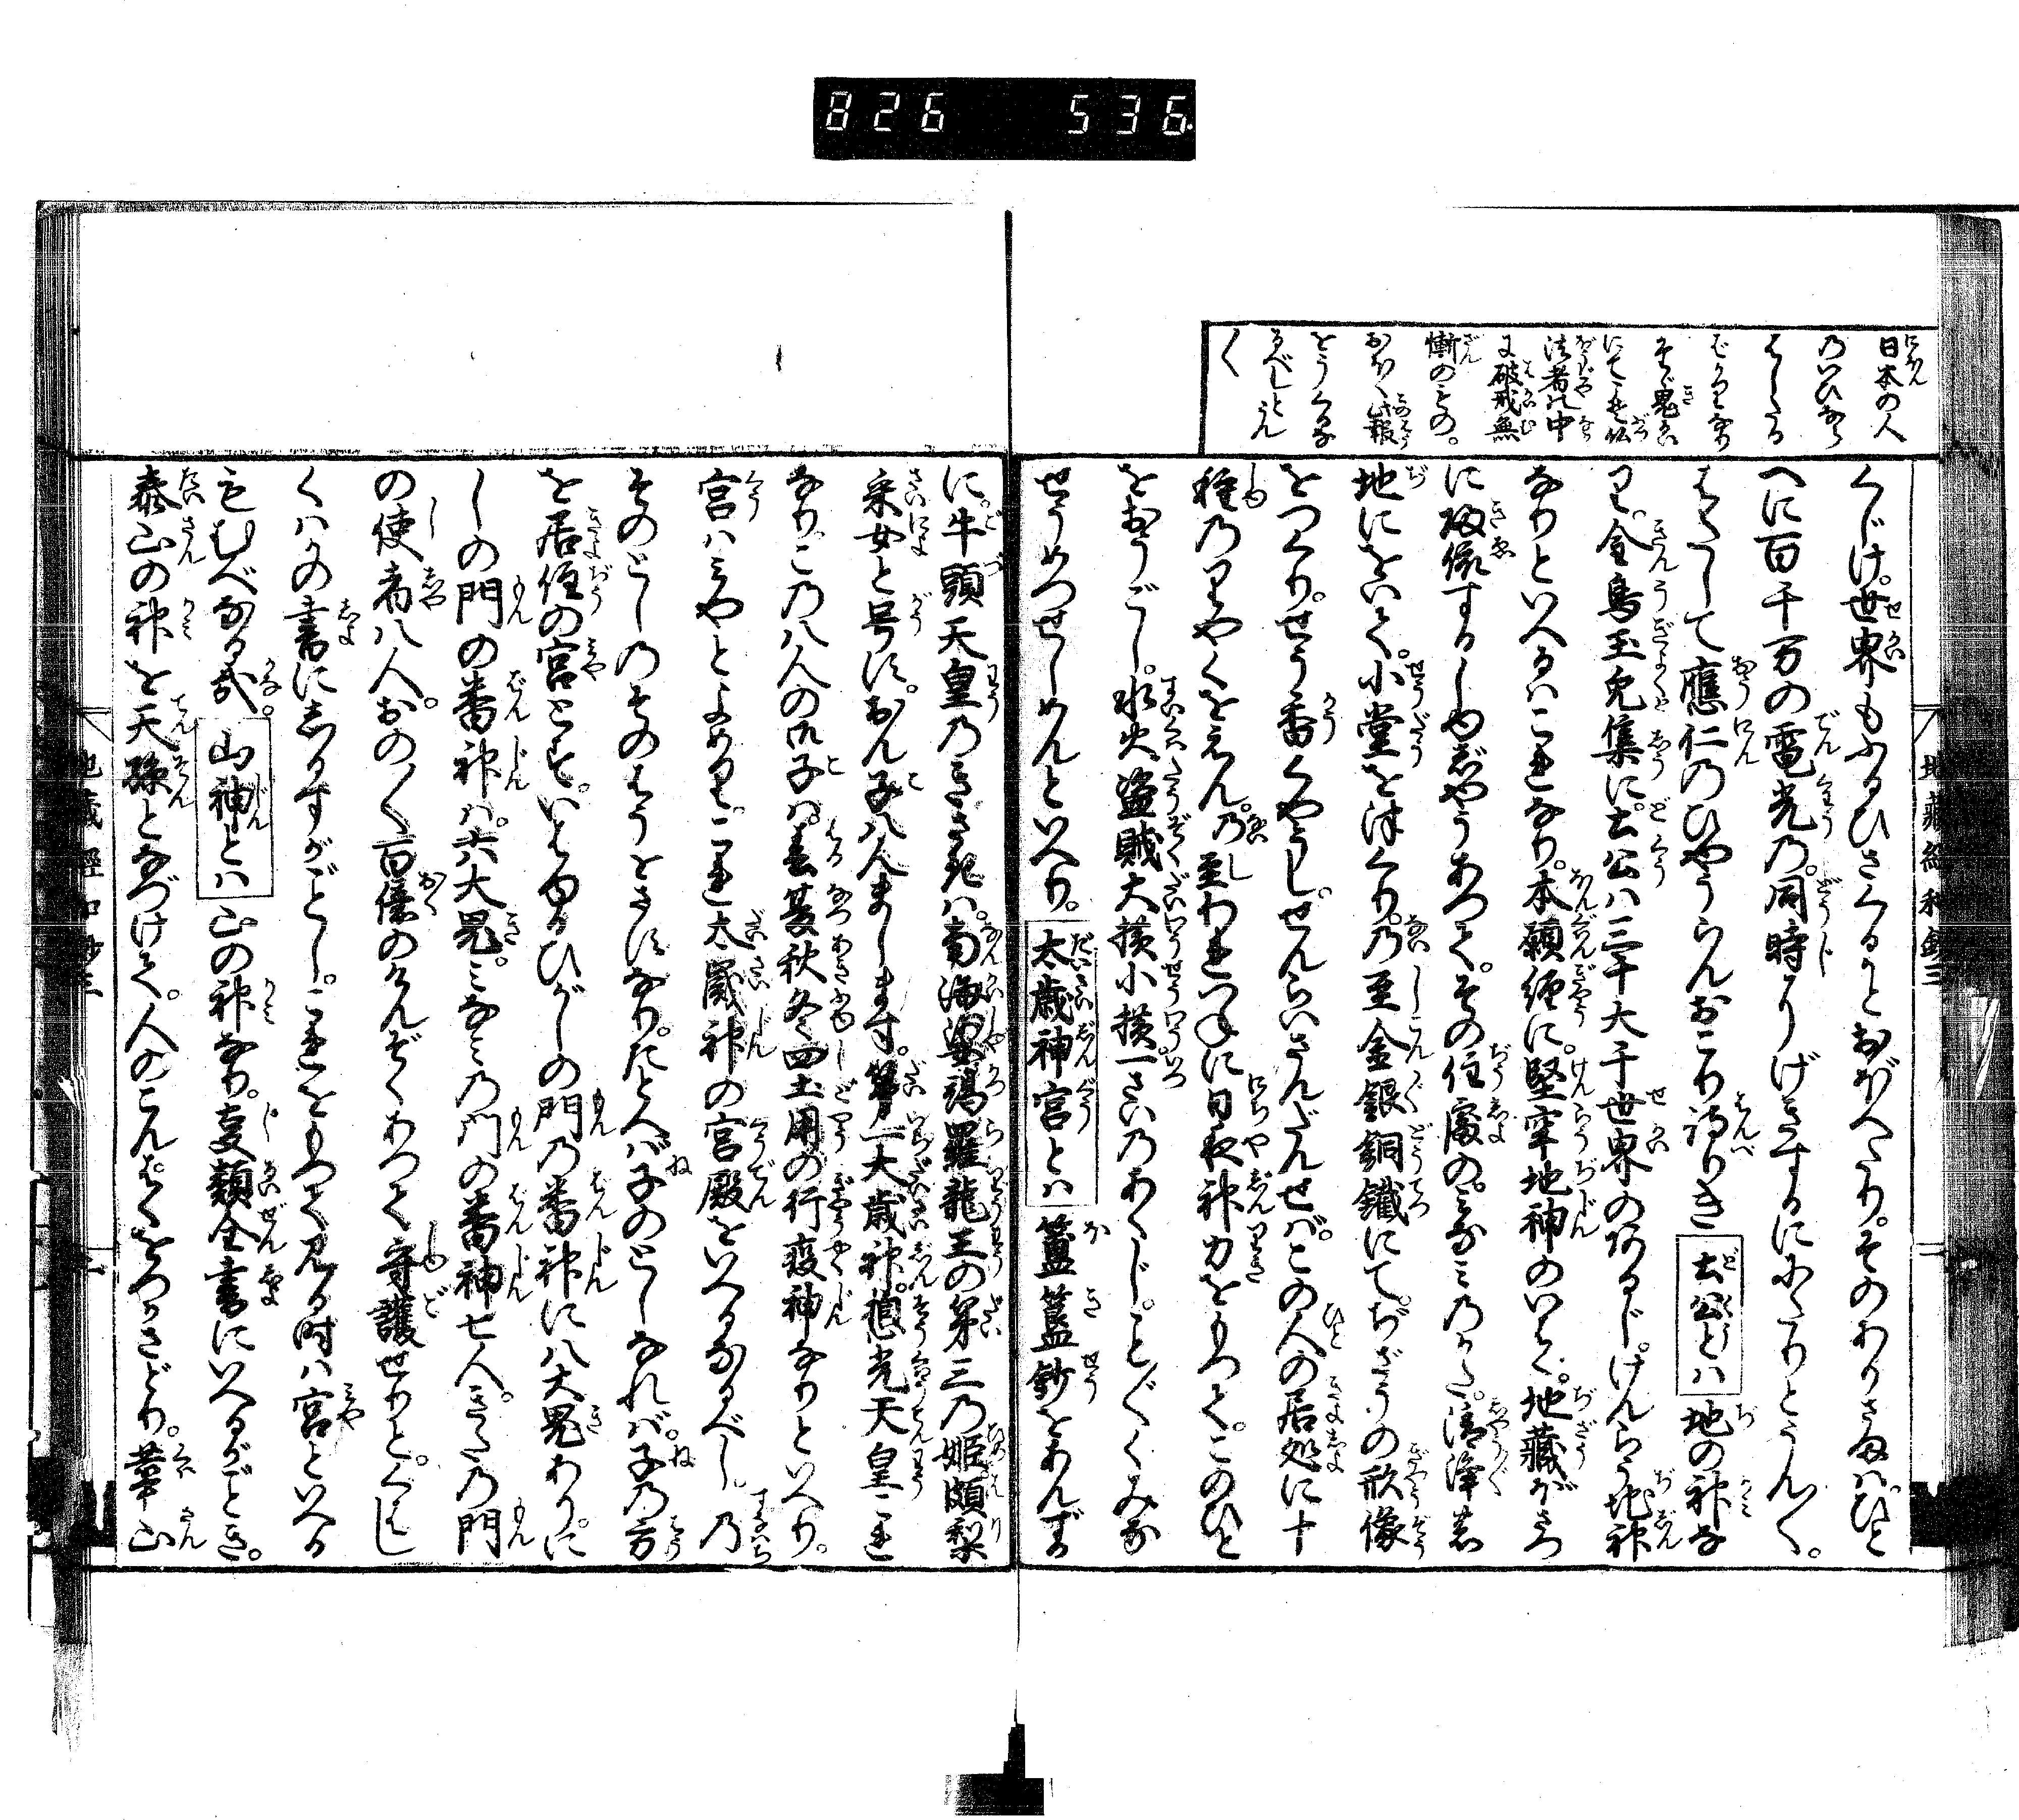 826 536
日本の人
のいひなら
はしたる
ばかりなり
すべて鬼るい
にても仏
法者の中
に破戒無
慚のもの。
おほく此報
をうくるな
るべしとうん
〱
くじけ。世界もふるひさくるかとおぼへたり。そのありさまはひと
へに百千万の電光の。同時にりげきするににたりとうん〱。
はたして應仁のひやうらんおこり侍りき 土公とは 地の神な
り。金烏玉兎集に土公ハ三千大千世界のあるじ。けんらう地神
なりといへるハこれなり。本願経に。堅牢地神のいはく。地藏ぼさつ
に帰依するしゆじやうあつて。その住處の。みなみのかた。清浄の
地にをいて。小堂をつくり。乃至金銀銅鐵にて。ぢざうの形像
をつくり。せう香くやうし。せんらいさんだんせば。この人の居処に十
種のりやくをえん。乃至われつねに日夜神力をもつて。このひと
をおうごし。水火盗賊大横小横一さいのあくじ。こと〲くみな
せうめつせしめんといへり。 太歳神宮とは 簠簋鈔をあんずる
に。牛頭天皇のきさきハ。南海娑竭羅龍王の第三の姫頗梨
采女と号す。おん子八人まします。第一大歳神。揔光天皇これ
なり。この八人の御子ハ。春夏秋冬四土用の行疫神なりといへり。
宮ハみやとよめり。これ太歳神の宮殿をいへるなるべし。乃
そのとしのそのはうをさすなり。たとへバ子のとしなれバ。子の方
を居住の宮とす。いはゆるひがしの門の番神に八大鬼あり。に
しの門の番神ハ。六大鬼。みなみの門の番神七人。きたの門
の使者八人。おの〱百億のけんぞくあつて守護せりと。くはし
くハかの書にしるすがごとし。これをもつて見る時ハ宮といへる
もむべなる哉。 山神とは 山の神なり。事類全書にいへるがごとき。
泰山の神を天孫となづけて。人のこんぱくをつかさどり。華山
地藏經和鈔三